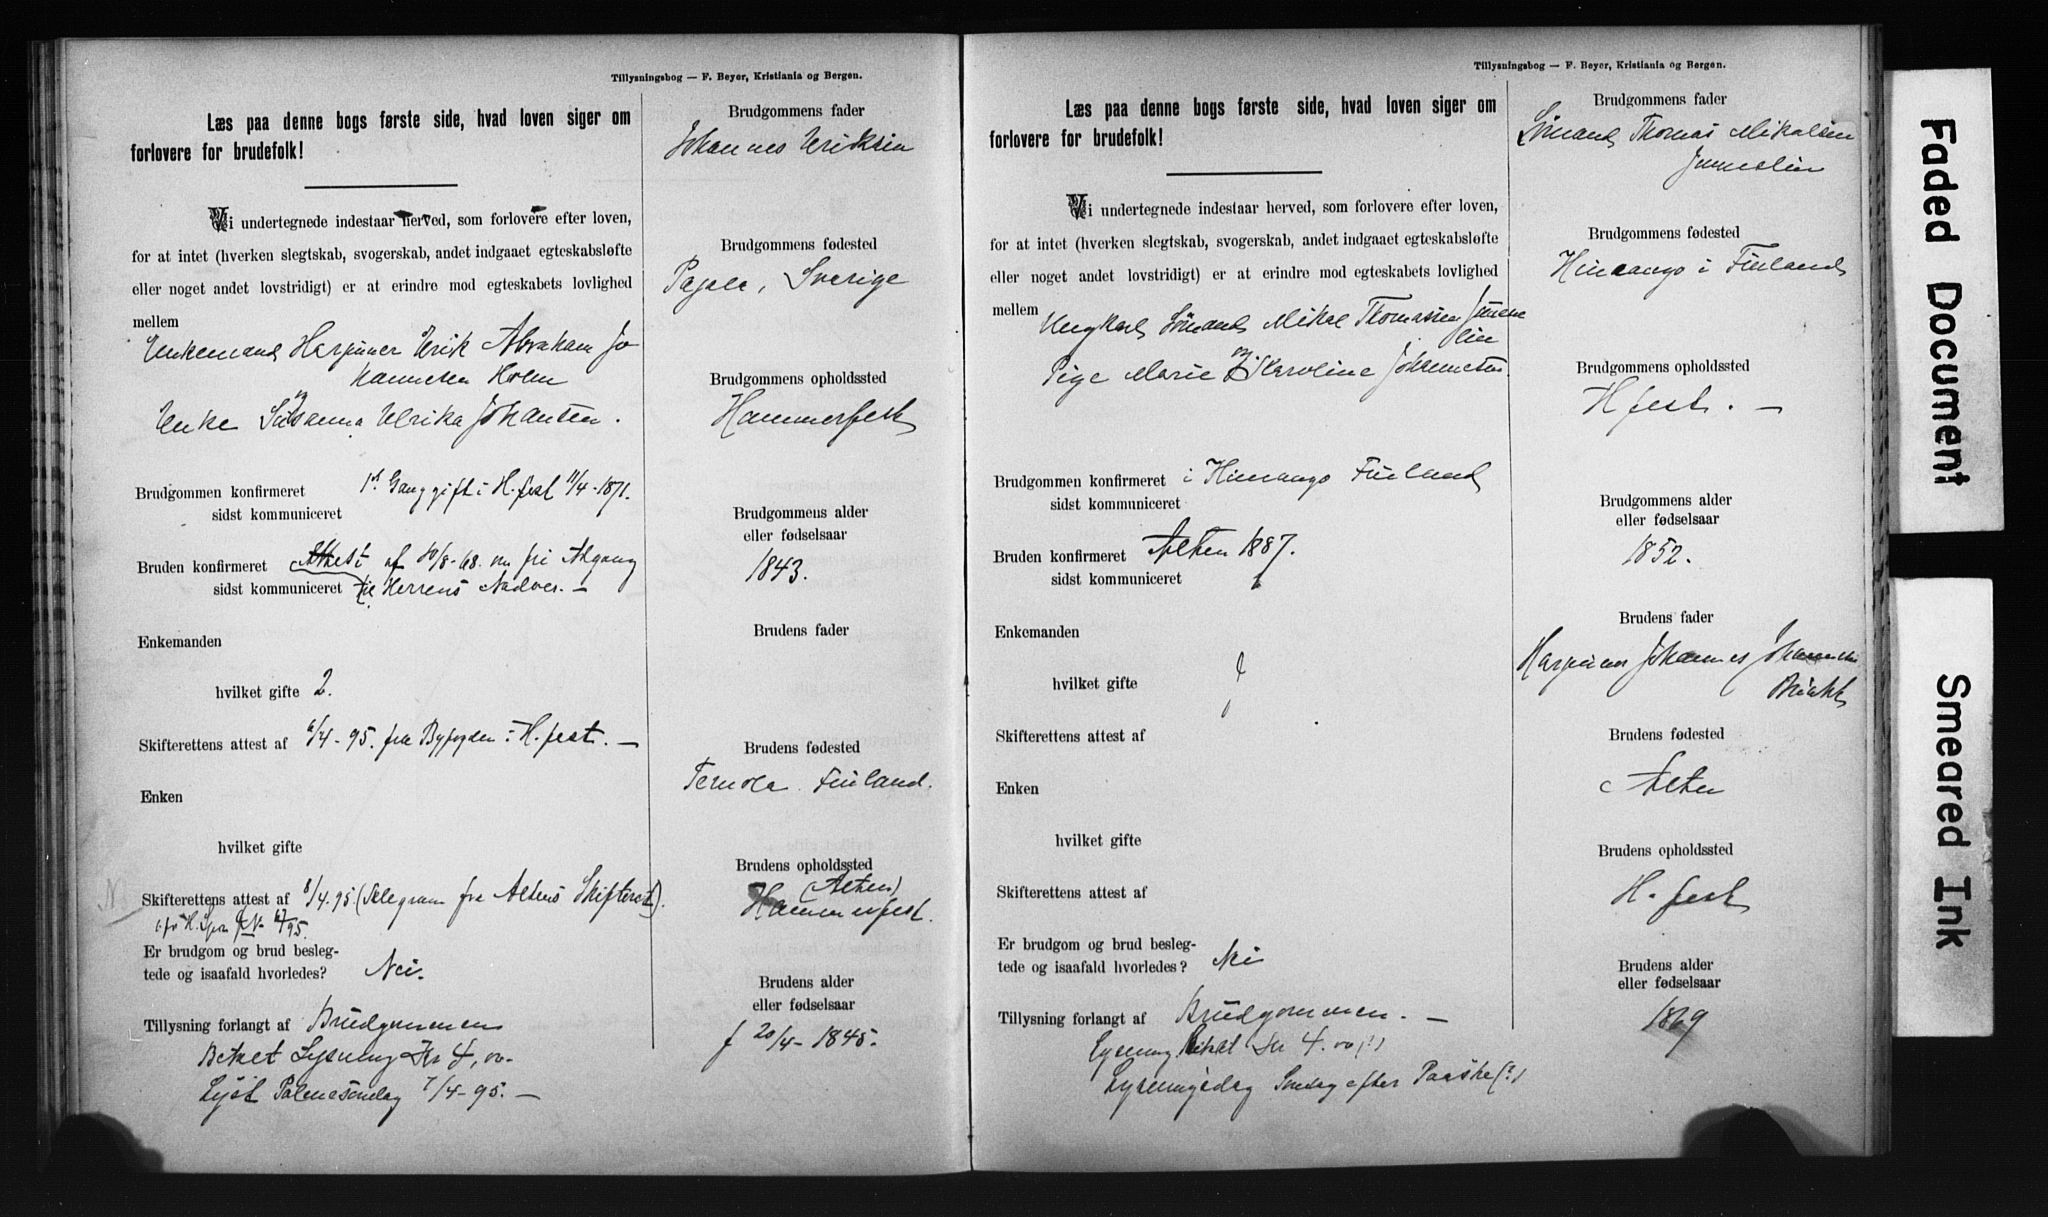 Tillysningsbog — F. Beyer, Kristiania og Bergen.
Læs paa denne bogs første side, hvad loven siger om
forlovere for brudefolk!
Vi undertegnede indestaar herved, som forlovere efter loven,
for at intet (hverken slegtskab, svogerskab, andet indgaaet egteskabsløfte
eller noget andet lovstridigt) er at erindre mod egteskabets lovlighed
mellem
Enkemand Harpuner Erik Abraham Jo
hannesen Holm
og
Enke Susanna Ulrika Johansen.
Brudgommen konfirmeret 1st Gang gift i H.fest 11/4-1871.
sidst kommuniceret
Bruden konfirmeret Attest af 10/8-68. om fri Adgang
sidst kommuniceret til Herrens Nadver. —
Enkemanden
hvilket gifte 2.
Skifterettens attest af 6/4-95. fra Byfogden i H.fest. —
Enken
hvilket gifte
Skifterettens attest af 8/4.95 (Telegram fra Altens Skifteret).
Er brudgom og brud besleg-
tede og isaafald hvorledes? Nei.
Tillysning forlangt af Brudgommen
Betalt Lysning Kr 4,00-
Lyst Palmesøndag 7/4-95. —
Brudgommens fader
Johannes Eriksen
Brudgommens fødested
Pajala, Sverige
Brudgommens opholdssted
Hammerfest
Brudgommens alder
eller fødselsaar
1843.
Brudens fader
Brudens fødested
Ternola Finland.
Brudens opholdssted
(Alten)
Hammerfest.
Brudens alder
eller fødselsaar
f 20/4-1845.
Tillysningsbog — F. Beyer, Kristiania og Bergen.
Læs paa denne bogs første side, hvad loven siger om
forlovere for brudefolk!
Vi undertegnede indestaar herved, som forlovere efter loven,
for at intet (hverken slegtskab, svogerskab, andet indgaaet egteskabsløfte
eller noget andet lovstridigt) er at erindre mod egteskabets lovlighed
mellem Ungkarl Sømand Mikal Thomassen
og
Pige Marie Karoline Johannesen.
Brudgommen konfirmeret i Himango Finland
sidst kommuniceret
Bruden konfirmeret Alten 1887.
sidst kommuniceret
Enkemanden
hvilket gifte
Skifterettens attest af
Enken
hvilket gifte
Skifterettens attest af
Er brudgom og brud besleg-
tede og isaafald hvorledes? Nei
Tillysning forlangt af Brudgommen. —
Lysning betalt Kr 4.00 (?)
Lysningsdag Søndag efter Paaske (?)
Brudgommens fader
Sømand Thomas Mikalsen
Brudgommens fødested
Himango i Finland
Brudgommens opholdssted
Hfest. —
Brudgommens alder
eller fødselsaar
1852.
Brudens fader
Harpuner Johannes Johannesen
Brudens fødested
Alten
Brudens opholdssted
H.fest
Brudens alder
eller fødselsaar
1869
Faded Document
Smeared Ink